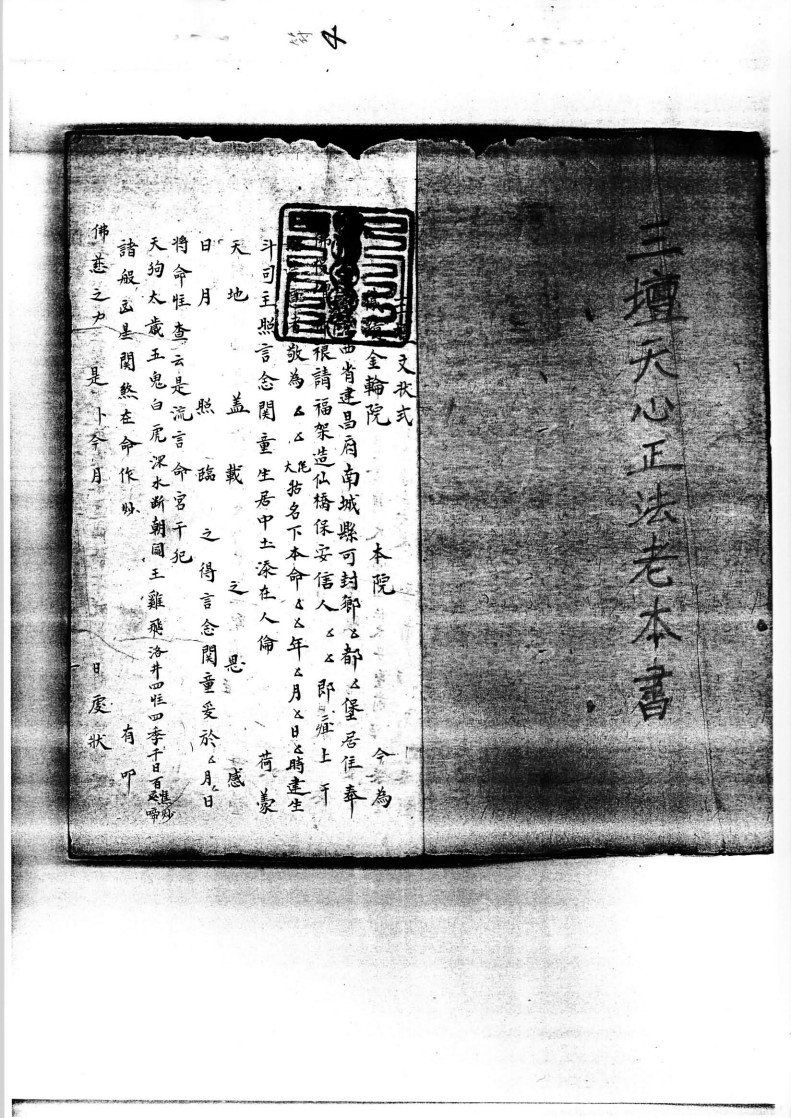 符4
三壇天心正法老本書
文狀式
金輪院 本院 今為
西省建昌府南城縣可封鄉厶都厶堡居住奉
根請福架造仙橋保安信人厶厶即㾏上干
敬為厶厶 大花 㧓名下本命厶厶年厶月厶日厶時建生
斗司主照言念関童生居中土添在人倫 荷蒙
天地 盖載 之恩 感
日月 照臨 之得言念関童爰於厶月厶日
將命恠查云是流言命宮干犯
天狗太歲五鬼白虎深水断朝國王雞飛洛井四恠四季千日百 啼
諸般凶星関煞在命作 有叩
佛慈之力 是卜今月 日處狀